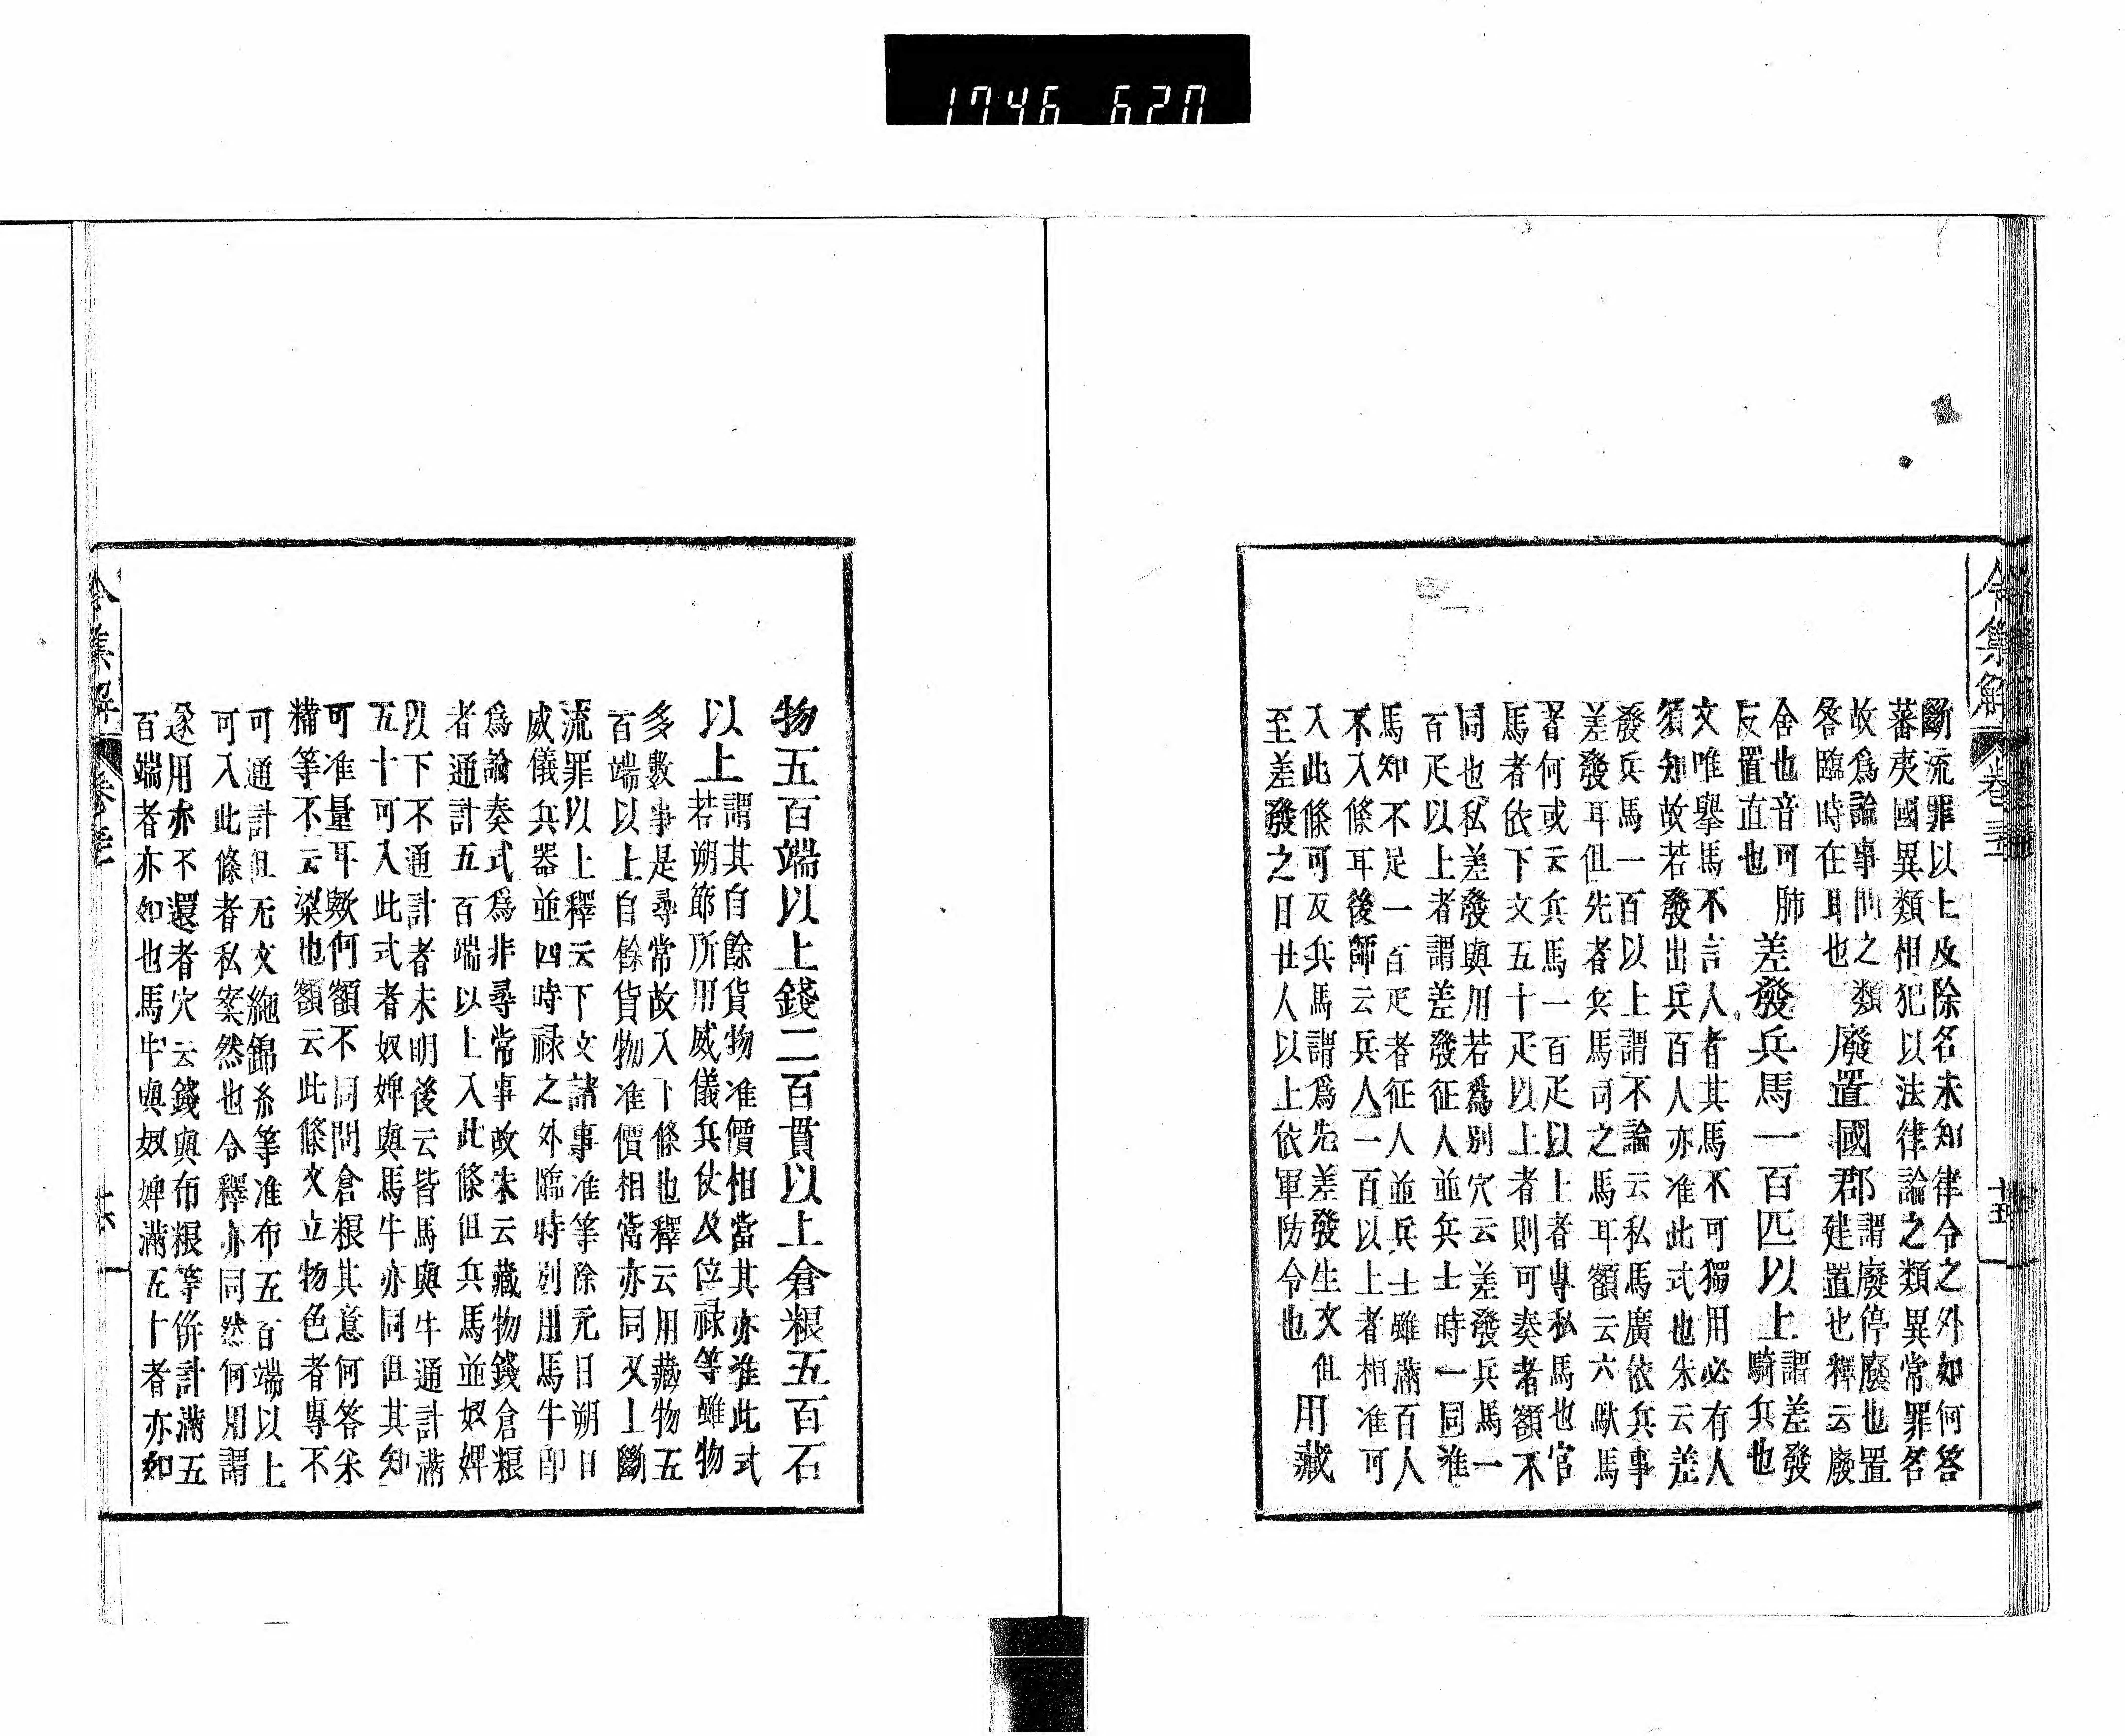 1746 620
令集解 卷三十一 十五
斷流罪以上及除名未知律令之外如何答
蕃夷國異類相犯以法律論之類異常罪名
故爲論事問之類 廢置國郡 謂廢停廢也置
答臨時在耳也 建置也釋云廢
舍也音可肺 差發兵馬一百匹以上 謂差發
反置直也 騎兵也
文唯擧馬不言人者其馬不可獨用必有人
須知故若發出兵百人亦准此式也朱云差
發兵馬一百以上謂不論云私馬廣依兵事
差發耳但先者兵馬司之馬耳額云六獸馬
者何或云兵馬一百疋以上者專私馬也官
馬者依下文五十疋以上者則可奏者額不
同也私差發與用若爲別穴云差發兵馬一
百疋以上者謂差發征人並兵士時一同准
馬知不足一百疋者征人並兵士雖滿百人
不入條耳後師云兵人一百以上者相准可
入此條可反兵馬謂爲先差發生文 但
至差發之日廿人以上依軍防令也 用藏
物五百端以上錢二百貫以上倉粮五百石
以上 謂其自餘貨物准價相當其亦准此式
若朔節所用威儀兵仗及位祿等雖物
多數事是尋常故入下條也釋云用藏物五
百端以上自餘貨物准價相當亦同又上斷
流罪以上釋云下文諸事准等除元日朔日
威儀兵器並四時祿之外臨時別用馬牛即
爲論奏式爲非尋常事故朱云藏物錢倉粮
者通計五百端以上入此條但兵馬並奴婢
以下不通計者未明後云皆馬與牛通計滿
五十可入此式者奴婢與馬牛亦同但其知
可准量耳歟何額不同問倉粮其意何答米
糒等不云梁也額云此條文立物色者專不
可通計但无文絁錦糸等准布五百端以上
可入此條者私案然也令釋亦同然何用謂
遂用亦不還者穴云錢與布粮等併計滿五
百端者亦如也馬牛與奴婢滿五十者亦如
令集解 卷三